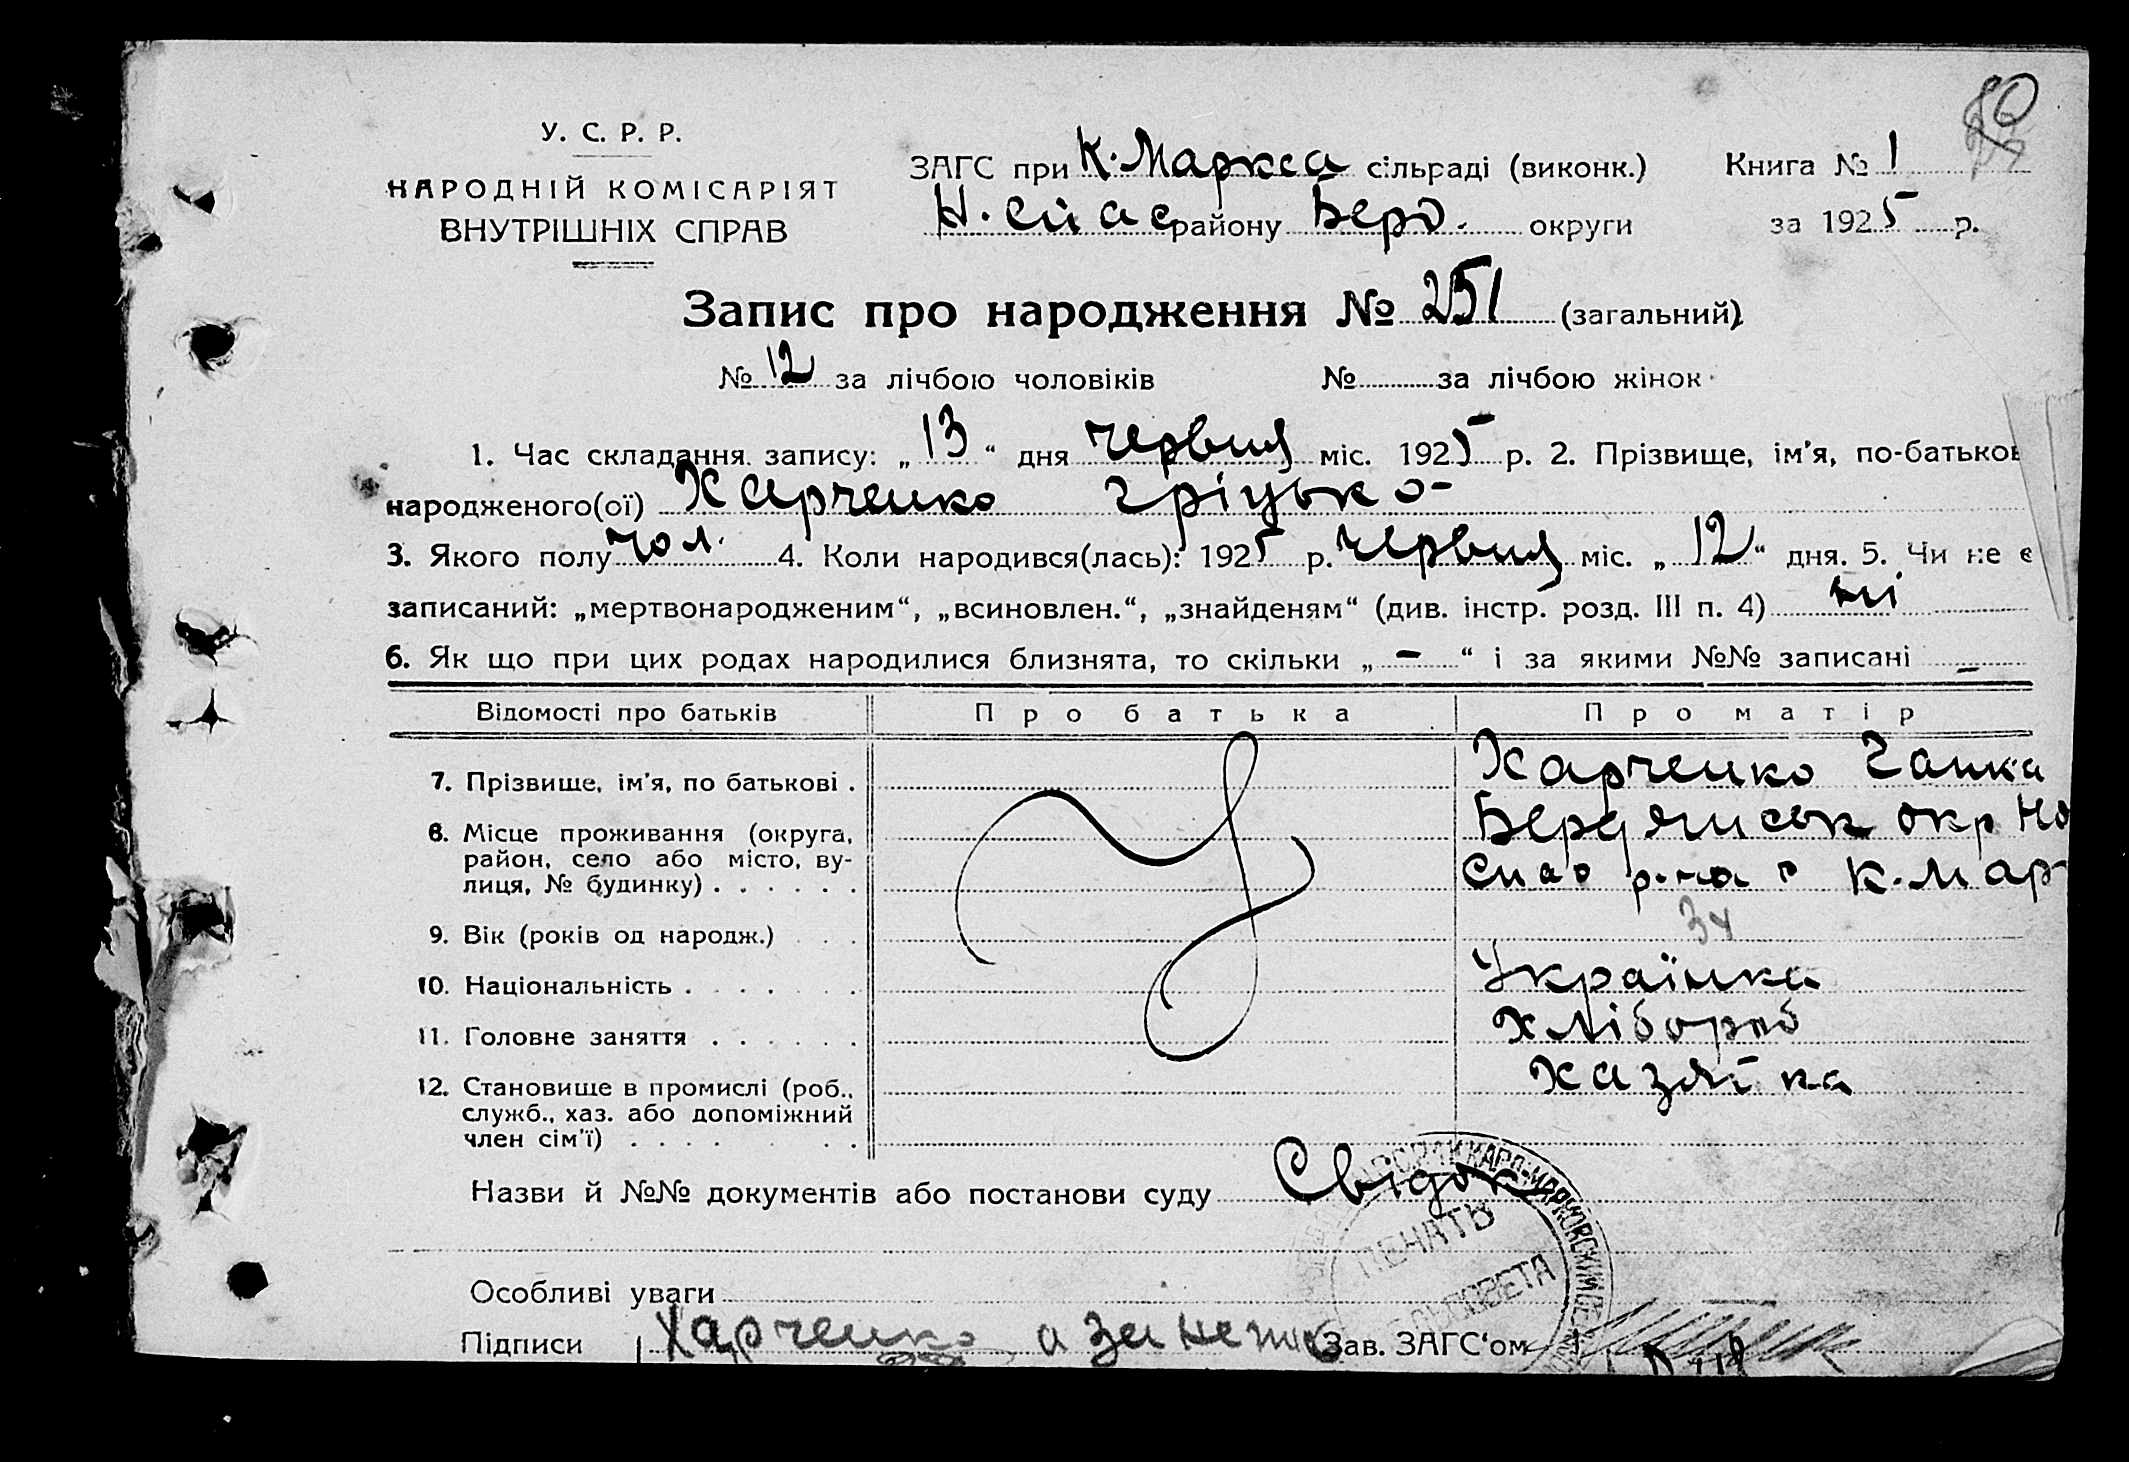 У. С. Р. Р.
НАРОДНІЙ КОМІСАРІЯТ
ВНУТРІШНІХ СПРАВ
ЗАГС при К. Маркса сільраді (виконк.) Книга № 1
Н. Спас району Берд. округи за 1925 р.
Запис про народження № 251 (загальний)
№ 12 за лічбою чоловіків № за лічбою жінок
1. Час складання запису: „13“ дня червня міс. 1925 р. 2. Прізвище, ім'я, по-батьков
народженого(ої) Харченко Гріцько
3. Якого полу чол. 4. Коли народився(лась): 1925 р. червня міс. „12“ дня. 5. Чи не є
записаний: „мертвонародженим“, „всиновлен.“, „знайденям“ (див. інстр. розд. III п. 4) ні
6. Як що при цих родах народилися близнята, то скільки „-“ і за якими №№ записані -
Відомості про батьків Про батька Про матір
7. Прізвище, ім'я, по батькові . Харченко Ганка
8. Місце проживання (округа, Бердянськ окр Но
район, село або місто, ву-
лиця, № будинку) . . . . . . Спас р-на с К. Мар
9. Вік (років од народж.) . . . 34
10. Національність . . . . . Українка
11. Головне заняття . . . . . . Хлібороб
12. Становище в промислі (роб., Хазяйка
служб., хаз. або допоміжний
член сім'ї) . . . . . .
Назви й №№ документів або постанови суду Свідок
ПЕЧАТЬ
Особливі уваги
Підписи Харченко а за Зав. ЗАГС'ом